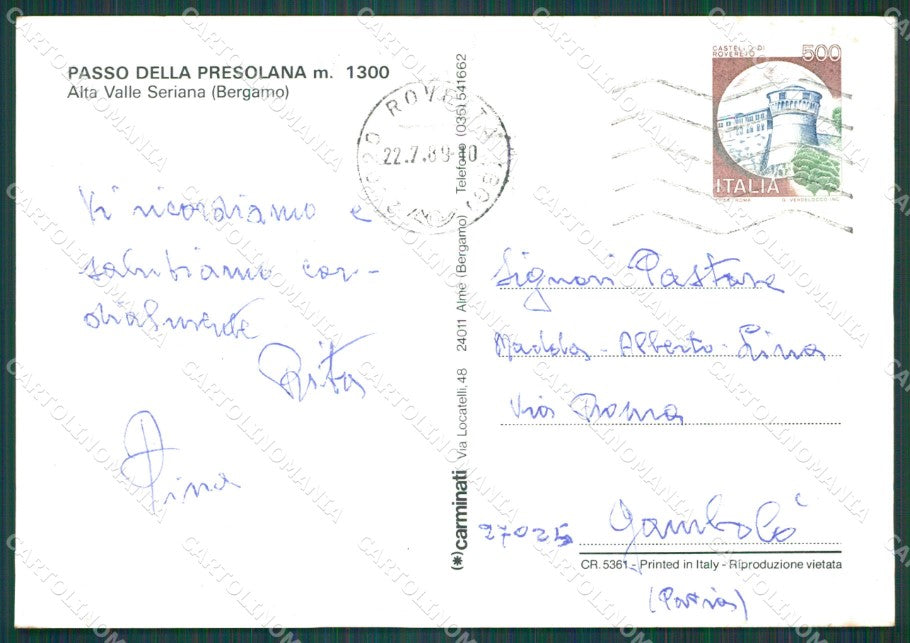 PASSO DELLA PRESOLANA m. 1300
Alta Valle Seriana (Bergamo)
Vi ricordiamo e
salutiamo cor-
dialmente
Rita
Pina
(*)carminati Via Locatelli, 48 24011 Almè (Bergamo) Telefono (035) 541662
22.7.89
CASTELLO DI
ROVERETO
500
ITALIA
I.P.S. ROMA G. VERDELOCCO INC.
Signori Pastore
Alberto - Lina
Via Roma
27025 Gambolò
CR. 5361 - Printed in Italy - Riproduzione vietata
(Pavia)
CARTOLINOMANIA